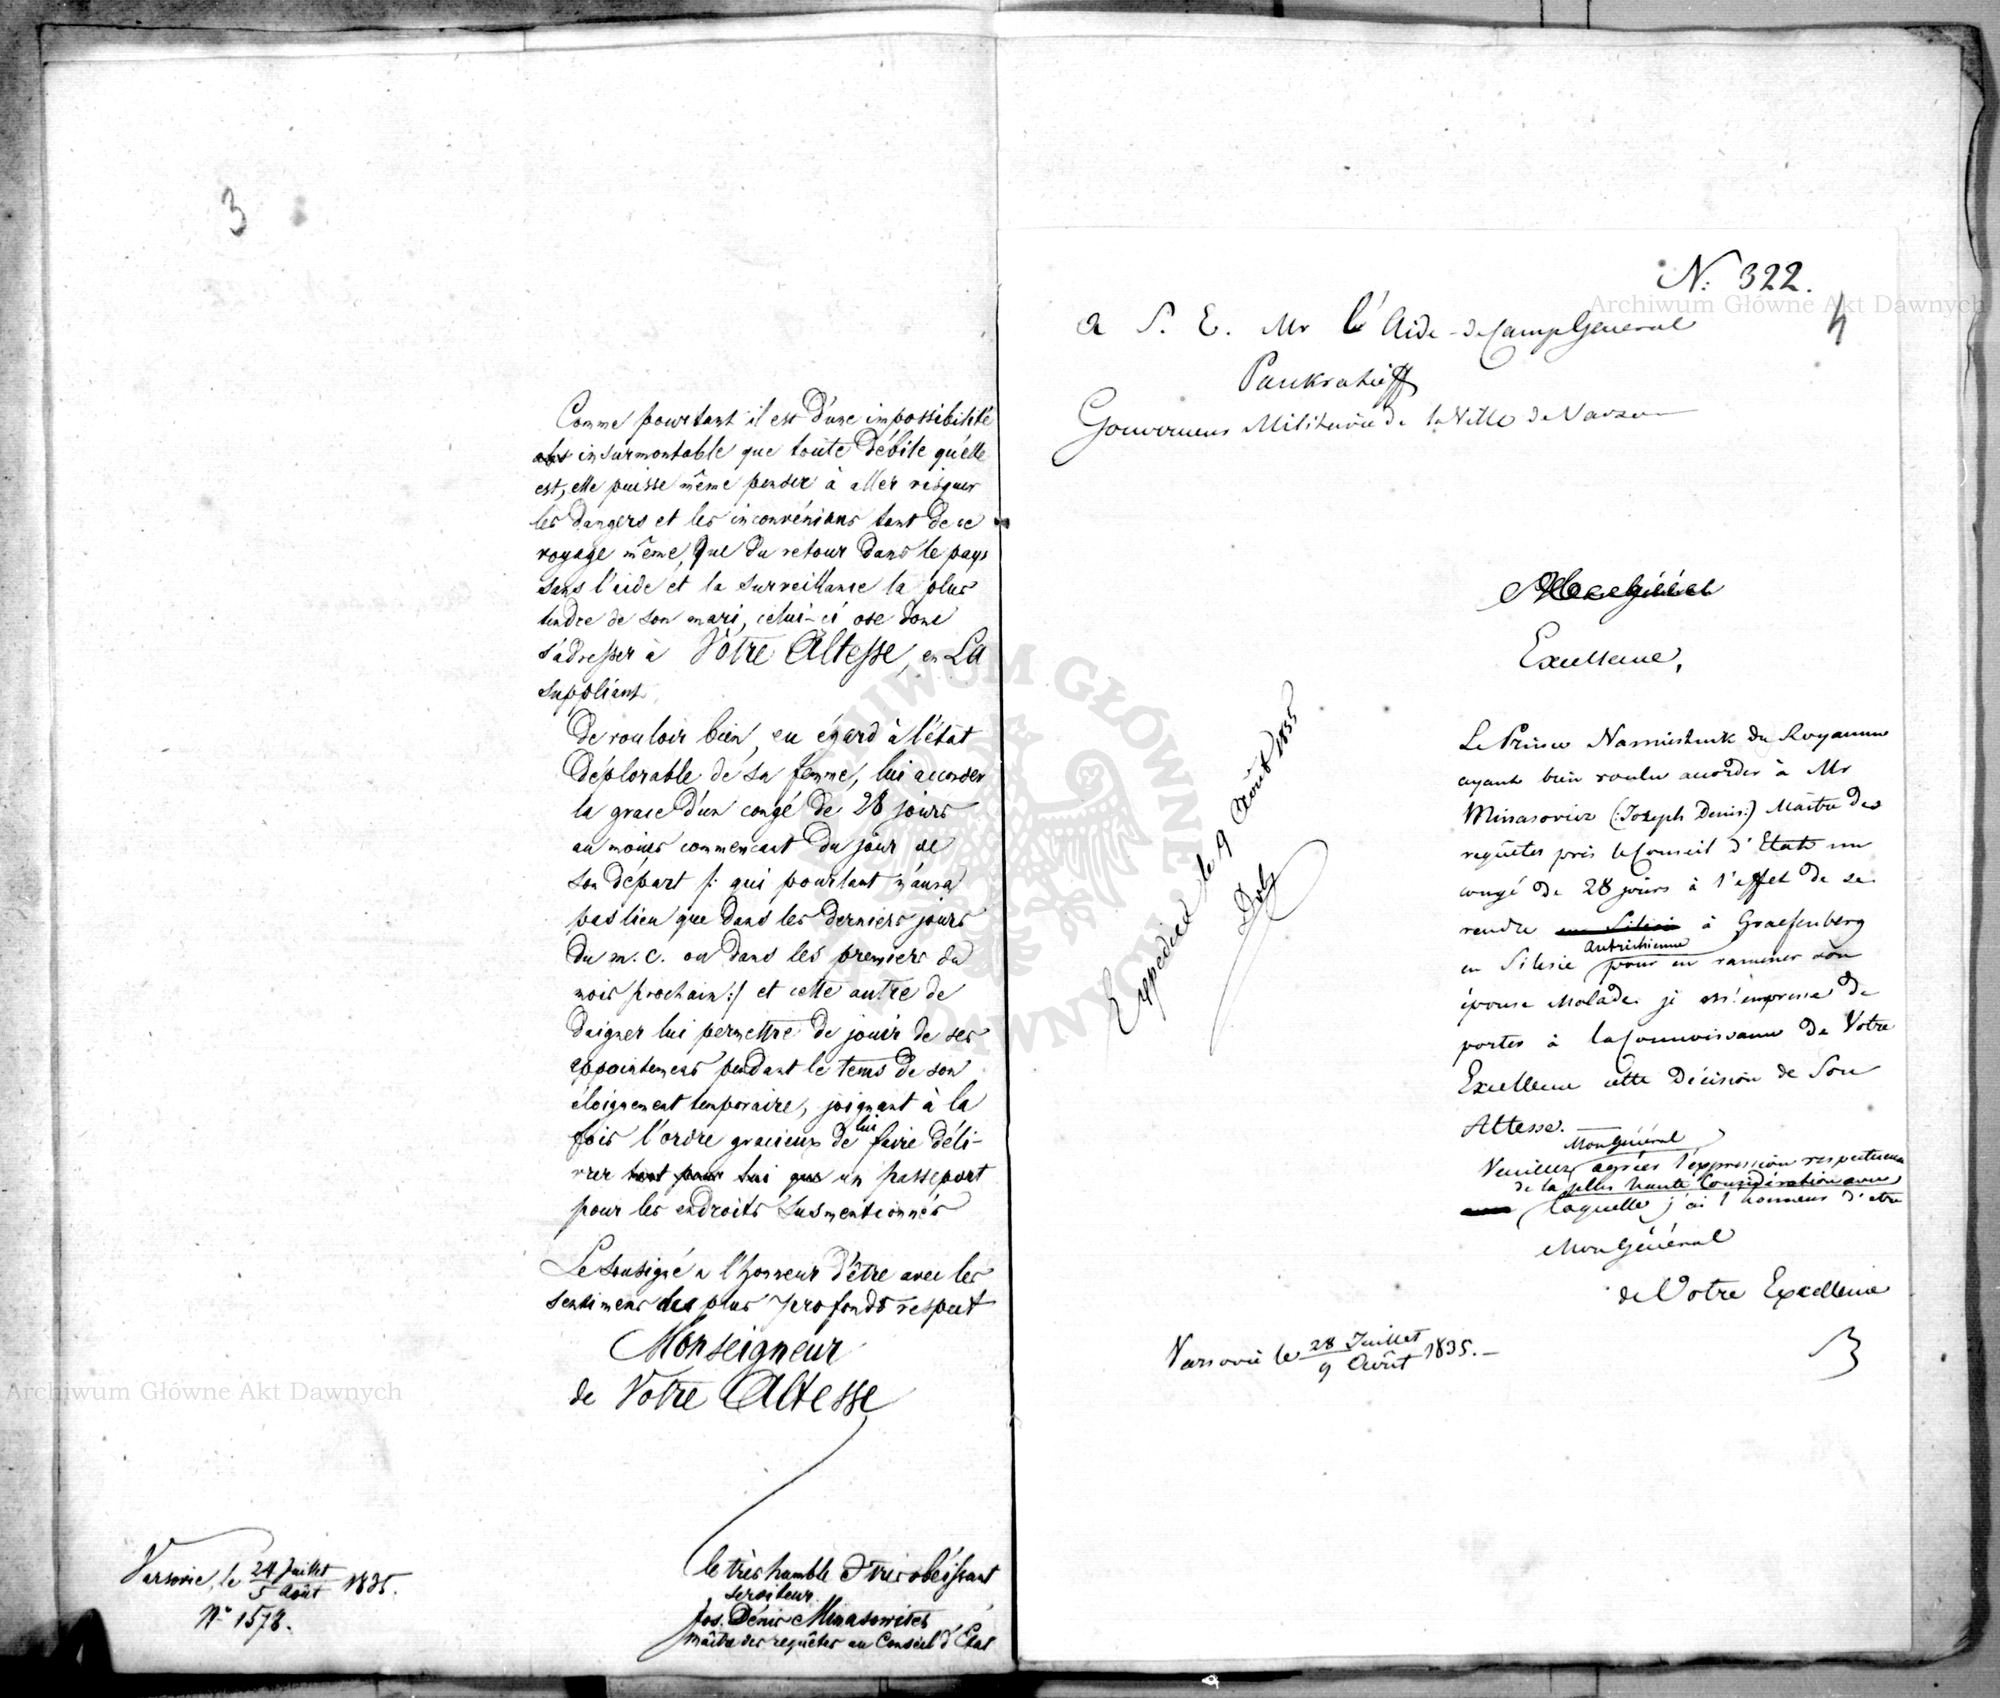 3
Comme pourtant il est d'une impossibilité
insurmontable que toute débile qu'elle
est, elle puisse même penser à aller risquer
les dangers et les inconvéniens tant de ce
voyage même, que du retour dans le pays
sans l'aide et la surveillance la plus
tendre de son mari, celui-ci ose donc
s'adresser à Votre Altesse, en La
suppliant
De vouloir bien, eu égard à l'état
déplorable de sa femme, lui accorder
la grace d'un congé de 28 jours
au moins commencant du jour de
son départ /: qui pourtant n'aura
pas lieu que dans les derniers jours
du m. c. ou dans les premiers du
mois prochain :/ et cette autre de
daigner lui permettre de jouir de ses
appointemens pendant le tems de son
éloignement temporaire, joignant à la
fois l'ordre gracieux de lui faire déli-
vrer tant pour lui que un passeport
pour les endroits susmentionnés
Le sousigné a l'honneur d'être avec les
sentimens des plus profonds respect
Monseigneur
de Votre Altesse
le très humble & très obéissant
serviteur
Jos. Dénis Minasowicz
Maître des requêtes au Conseil d'État
Varsovie, le 24 Juillet / 5 Août 1835.
N° 1578.
N: 322.
4
a S. E. Mr l'Aide-de Camp General
Pankratieff
Gouverneur Militaire de la Ville de Varsovie
Excellence,
Le Prince Namiestnik du Royaume
ayant bien voulu accorder à Mr
Minasovicz (:Joseph Denis:) Maître des
requêtes près le Conseil d'Etat un
congé de 28 jours à l'effet de se
rendre en Silésie à Graefenberg
en Silésie Autrichienne pour en ramener son
épouse Malade, je m'empresse de
porter à la Connoissance de Votre
Excellence cette Décision de Son
Altesse.
Veuillez Mon Général agréer l'expression respectueuse
de la plus haute Considération avec
laquelle j'ai l'honneur d'etre
Mon Général
de Votre Excellence
Varsovie le 28 Juillet / 9 Août 1835.
Expedied le 9 Août 1835
Archiwum Główne Akt Dawnych
Archiwum Główne Akt Dawnych
ARCHIWUM GŁÓWNE AKT DAWNYCH